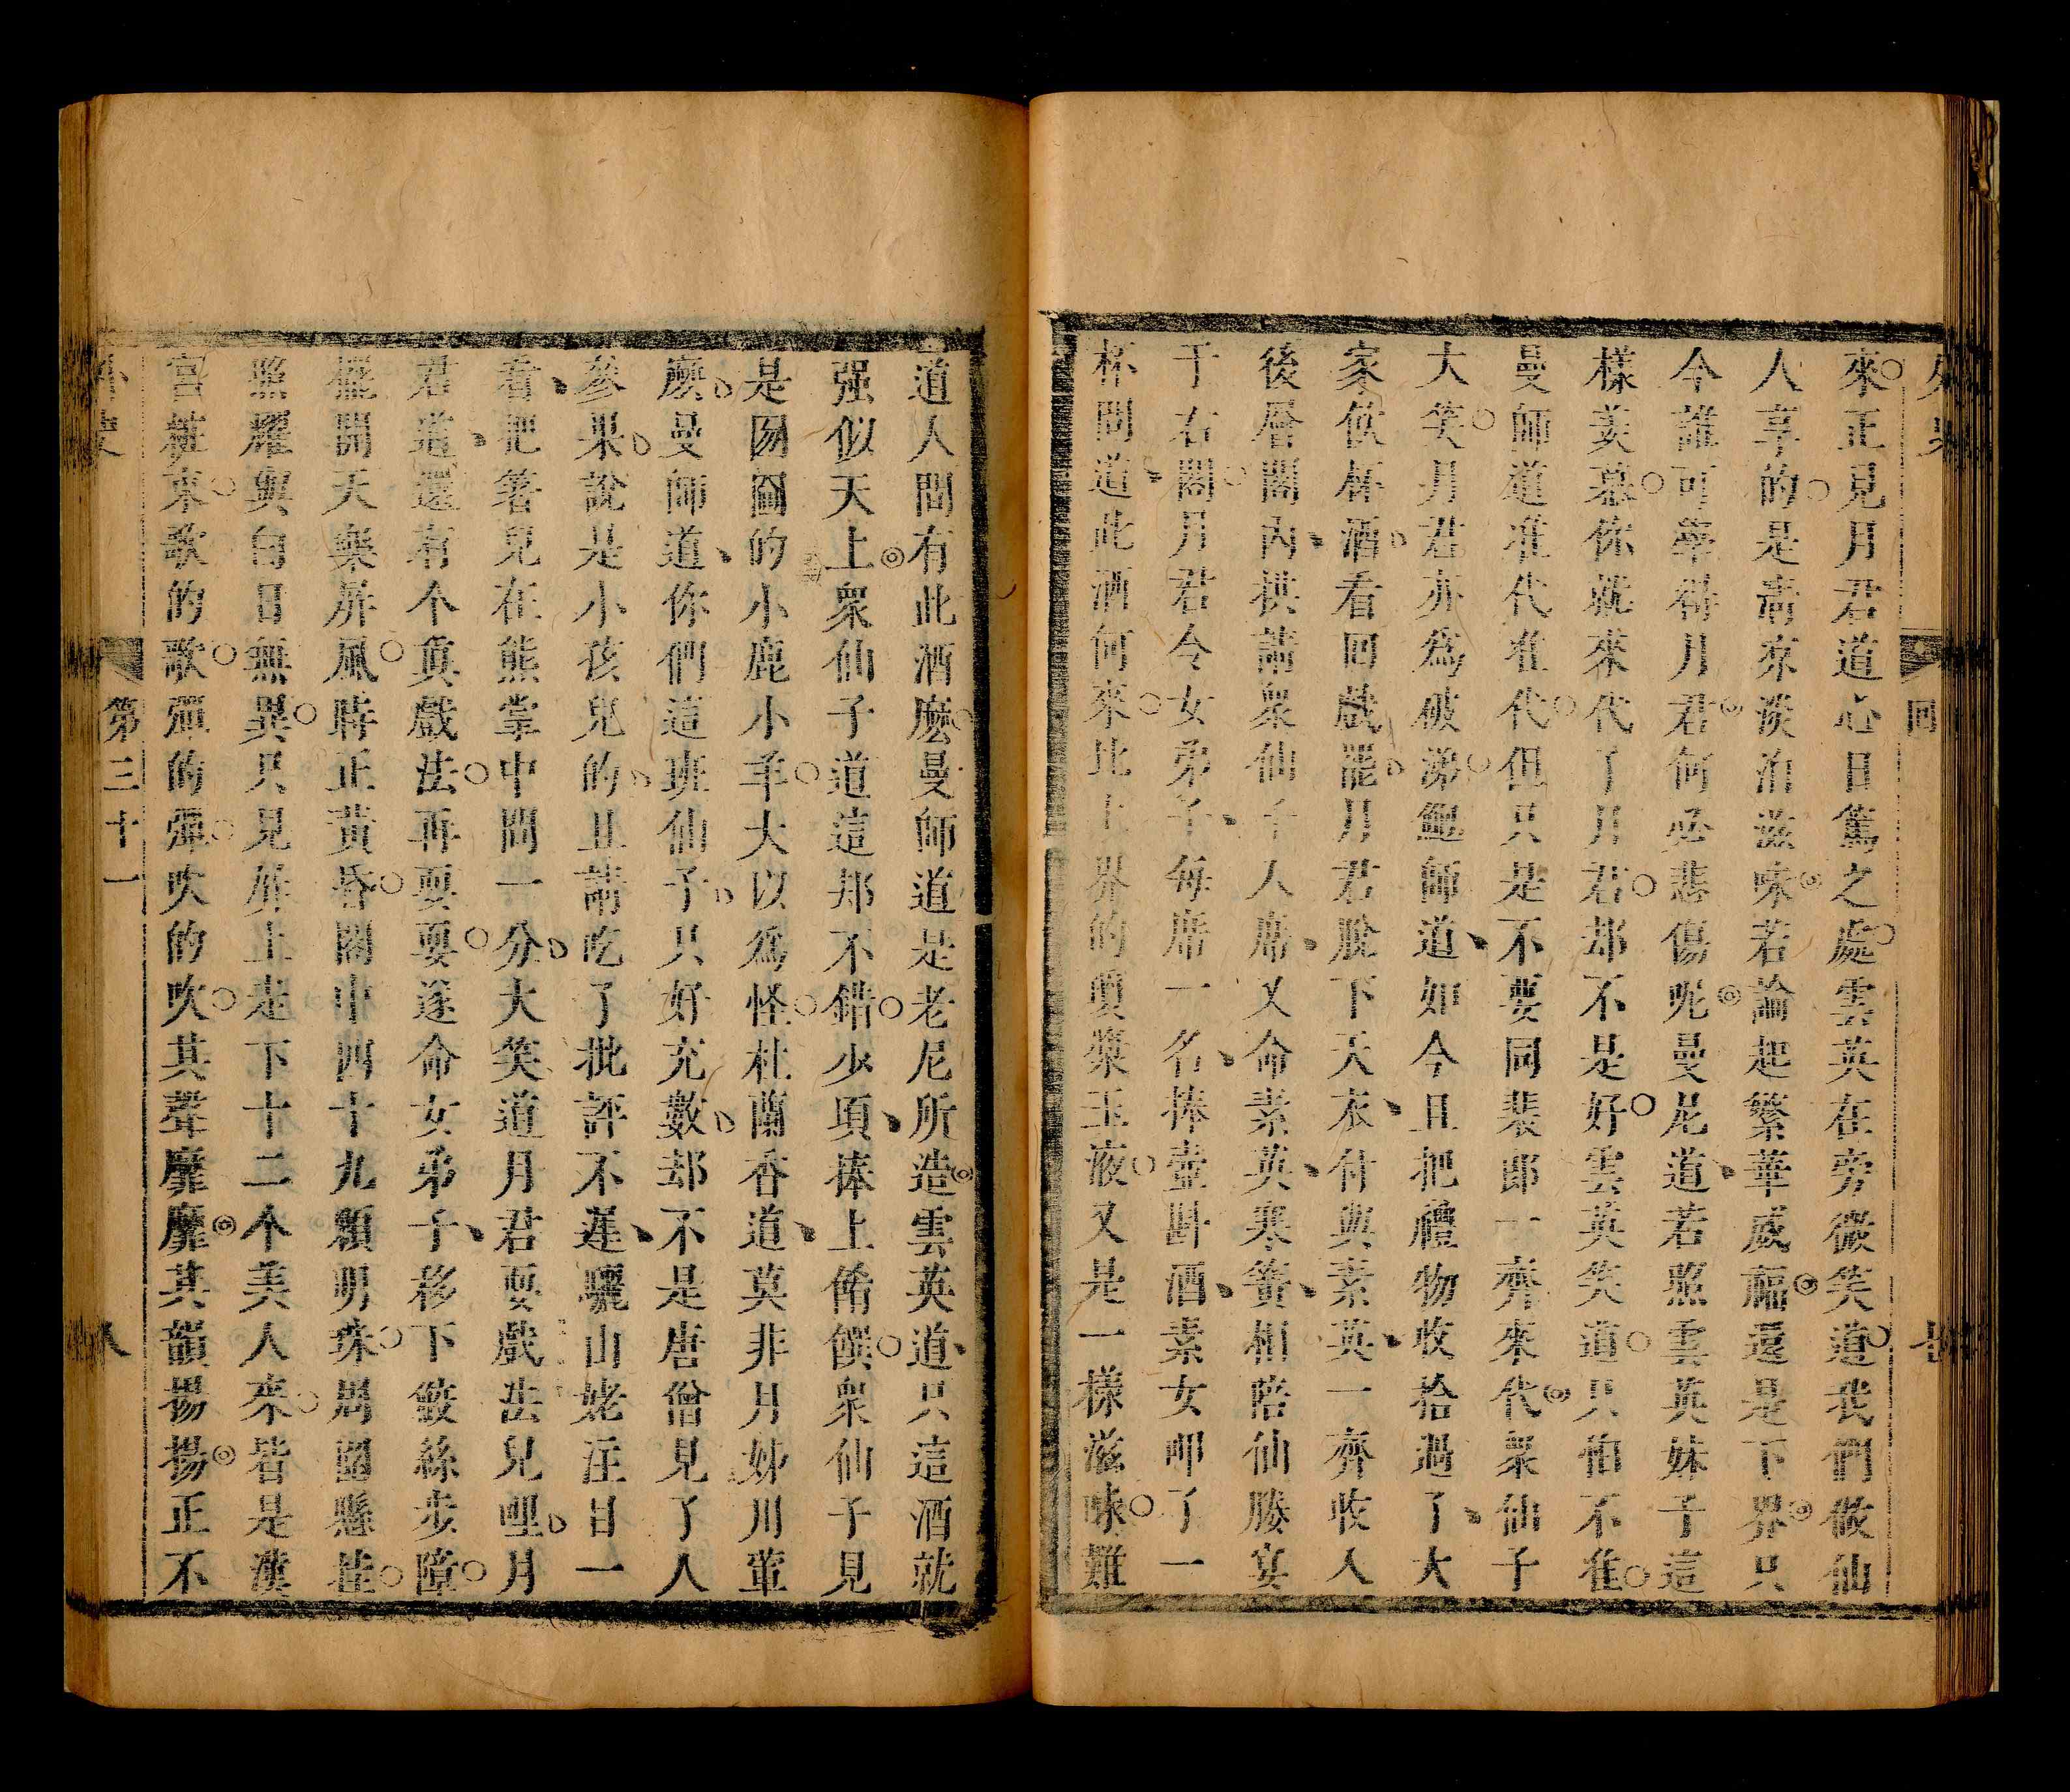 外史
回
七
來正見月君道心目篤之處雲英在旁微笑道我們做仙
人享的是清奈淡泊滋味若論起繁華盛福還是下界只
今誰可學得月君何必悲傷呢曼尼道若照雲英妹子這
樣羨慕你就來代了月君却不是好雲英笑道只怕不准
曼師道准代准代但只是不要同裴郎一齊來代衆仙子
大笑月君亦為破涕鮑師道如今且把禮物收拾過了大
家飲杯酒看回戲罷月君脫下天衣付與素英一齊收入
後層閣內模請衆仙子人席又命素英寒簧相陪仙勝宴
于右閣月君令女弟子每席一名捧壺斟酒素女呷了一
杯問道此酒何來比上界的瓊漿玉液又是一樣滋味難
道人間有此酒麽曼師道是老尼所造雲英道只這酒就
强似天上衆仙子道這却不錯少頃捧上侑饌衆仙子見
是囫圇的小鹿小羊大以為怪杜蘭香道莫非月姊川葷
麽曼師道你們這班仙子只好充數却不是唐僧見了人
參果說是小孩兒的且請吃了批評不遲驪山姥注目一
看把箸兒在熊掌中間一分大笑道月君耍戲法兒哩月
君道還有个眞戲法再耍耍遂命女弟子移下鮫絲步障
擺開天樂屏風時正黃昏閣中四十九顆明珠周圍懸挂
照耀與白日無異只見屏上走下十二个美人來皆是漢
宮粧束歌的歌彈的彈吹的吹其聲靡靡其韻揚揚正不
外史
第三十一
八